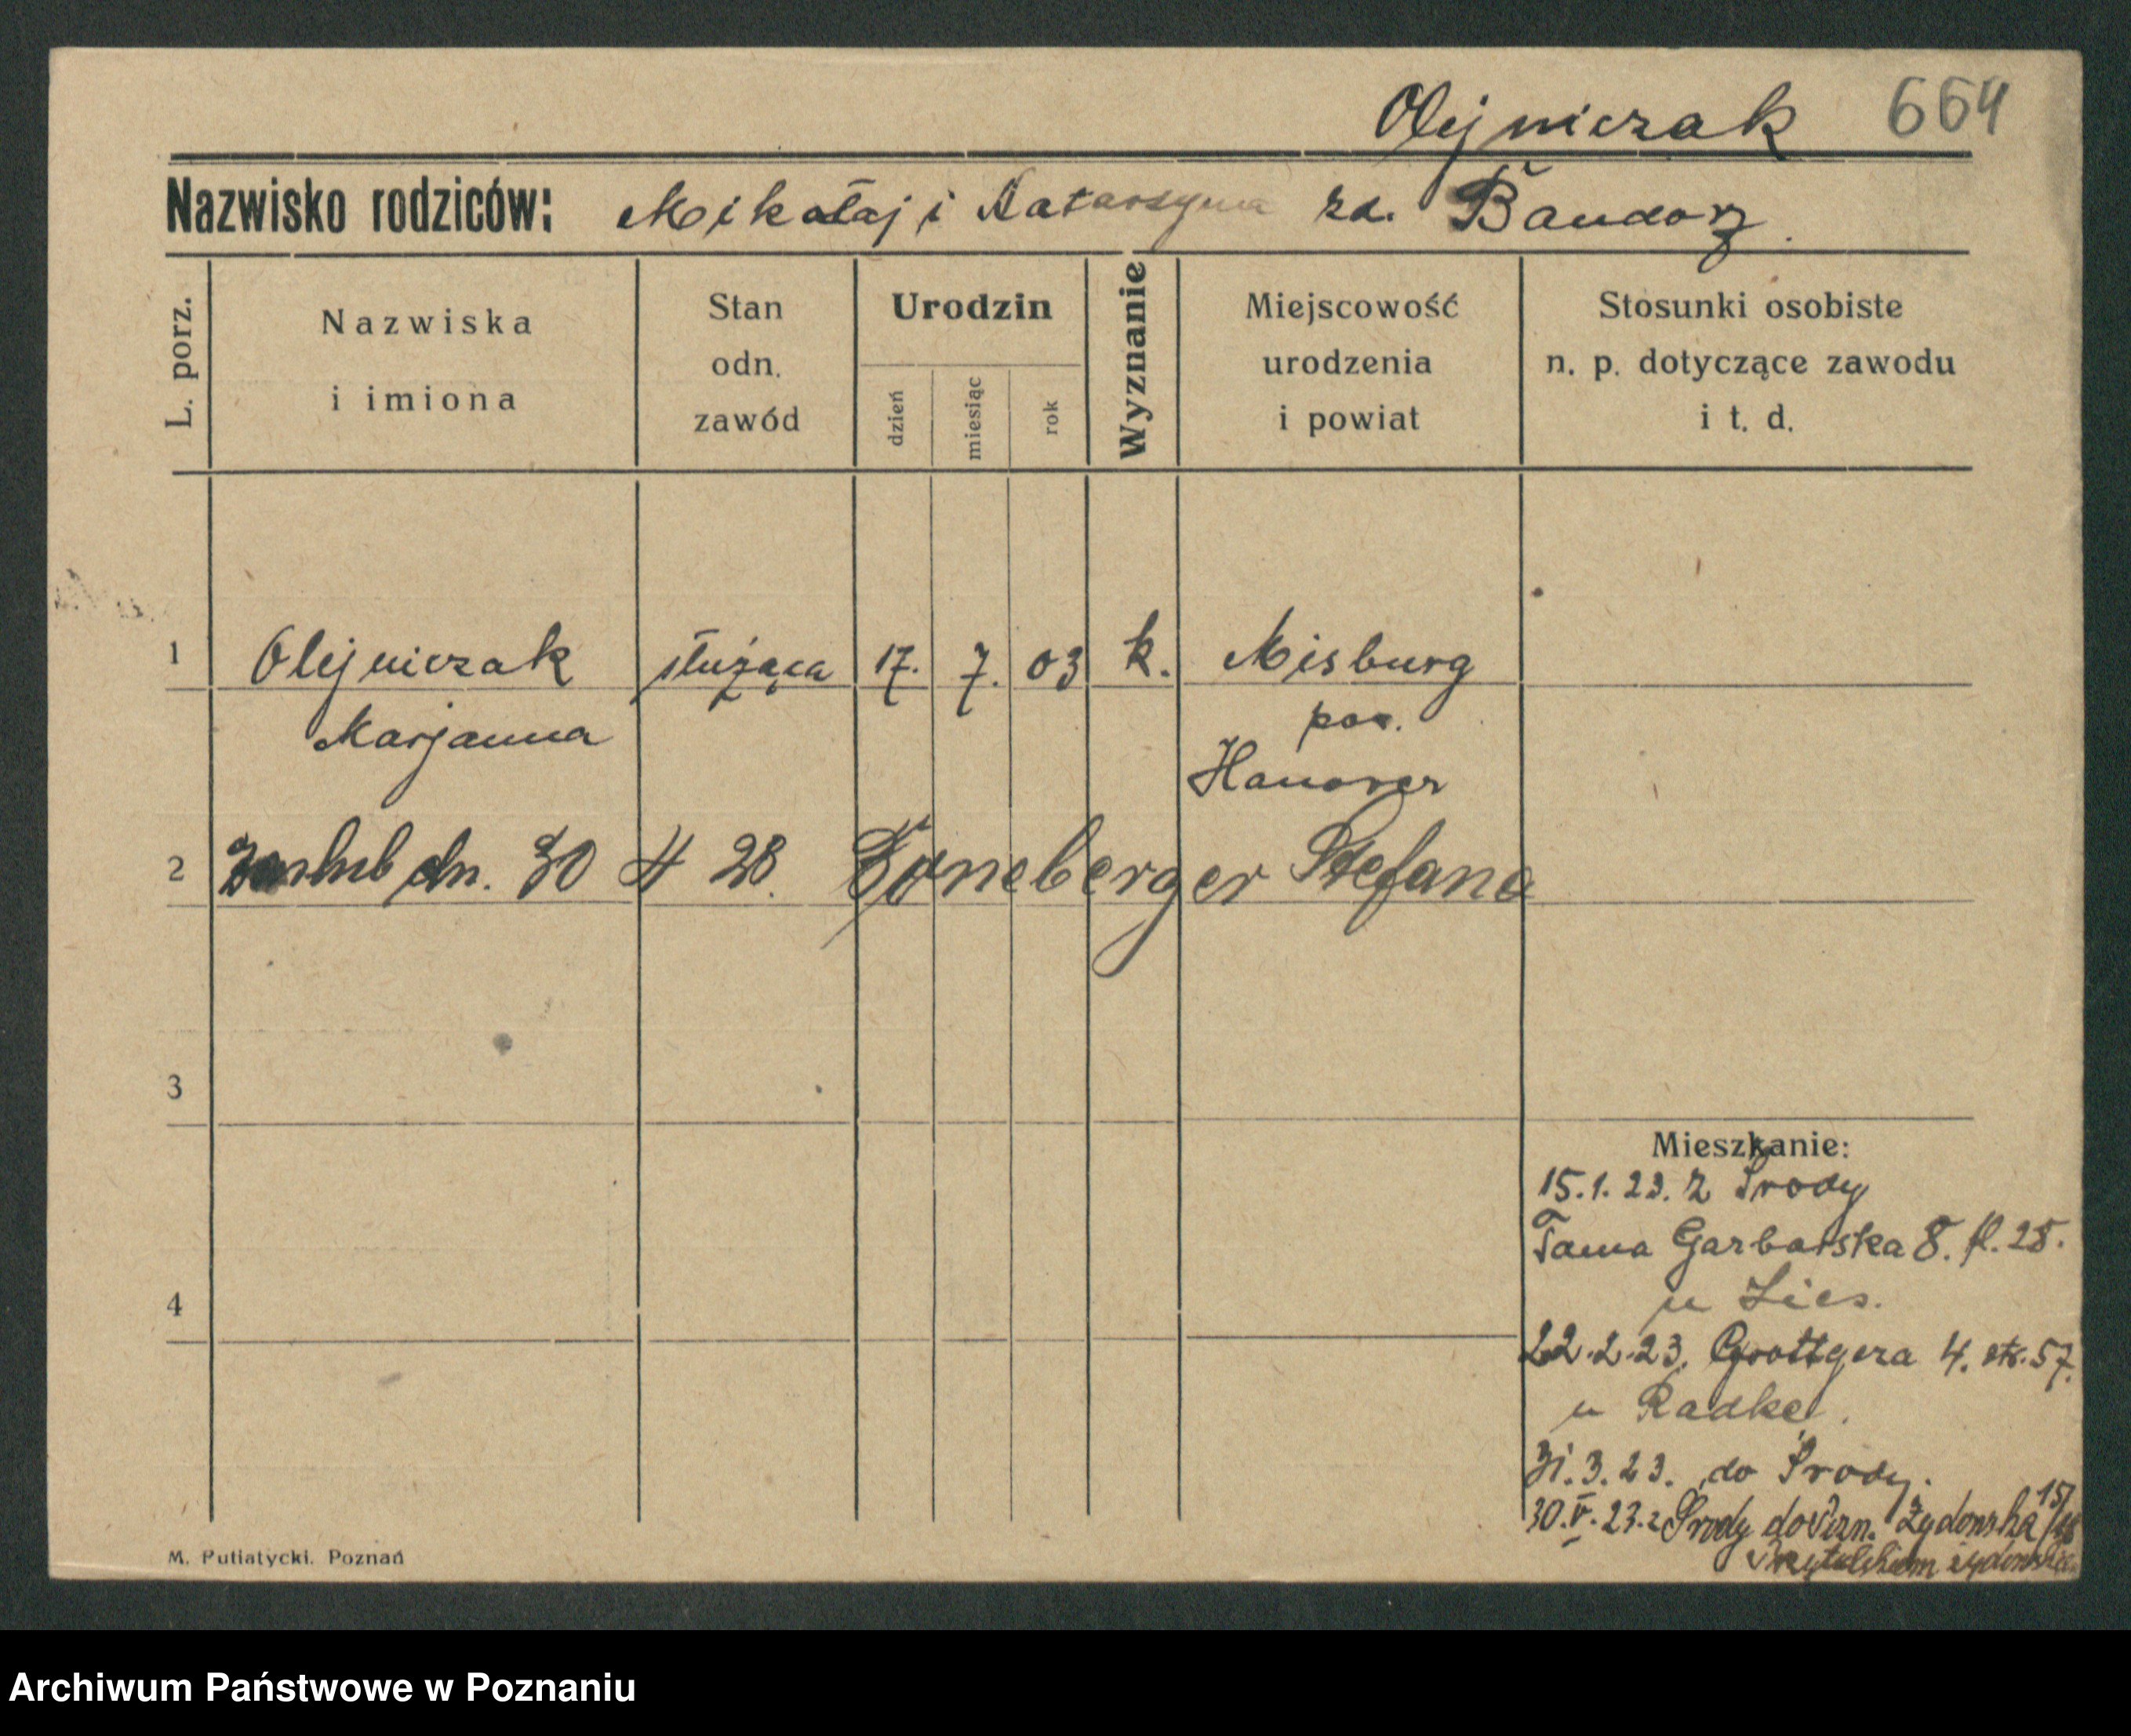 Olejniczak 664
Nazwisko rodziców: Mikołaj i Katarzyna zd. Bandorz.
L. porz.
Nazwiska
i imiona
Stan
odn.
zawód
Urodzin
dzień
miesiąc
rok
Wyznanie
Miejscowość
urodzenia
i powiat
Stosunki osobiste
n. p. dotyczące zawodu
i t. d.
1 Olejniczak służąca 17. 7. 03 k. Misburg
Marjanna pow.
Hanover
2 zaślub dn. 30 4 28. Stefana
3
4
Mieszkanie:
15.1.23. z Środy
Tama Garbarska 8. fl. 25.
u Lies.
22.2.23. Grottgera 4. str. 57.
u Radke.
31.3.23. do Środy.
30.V.23. z Środy do Pozn. Żydowska 15/18
żydowskim
M. Putiatycki. Poznań
Archiwum Państwowe w Poznaniu